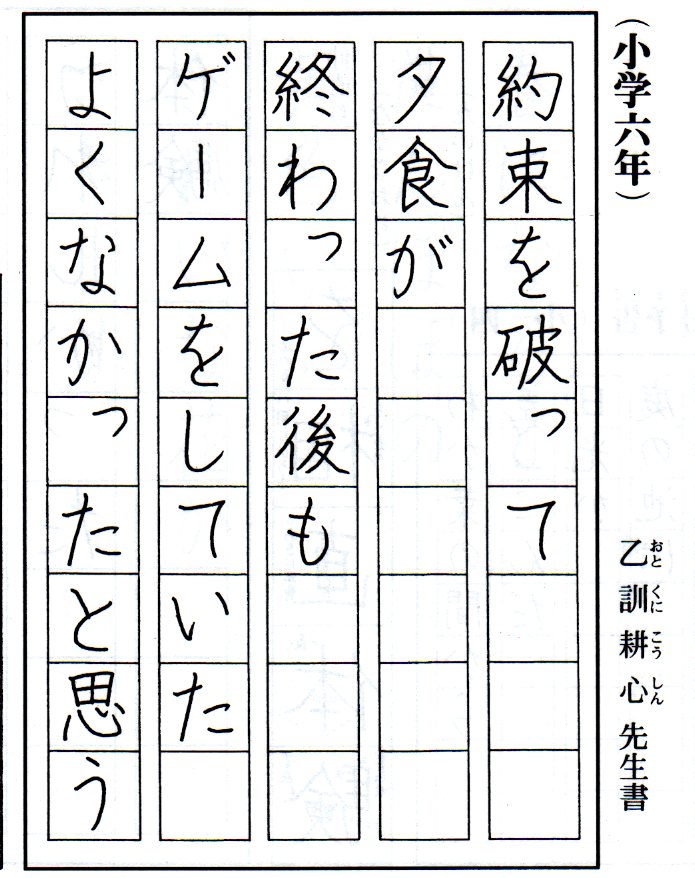 （小学六年）
乙訓耕心先生書
おとくにこうしん
約束を破って
夕食が
終わった後も
ゲームをしていた
よくなかったと思う